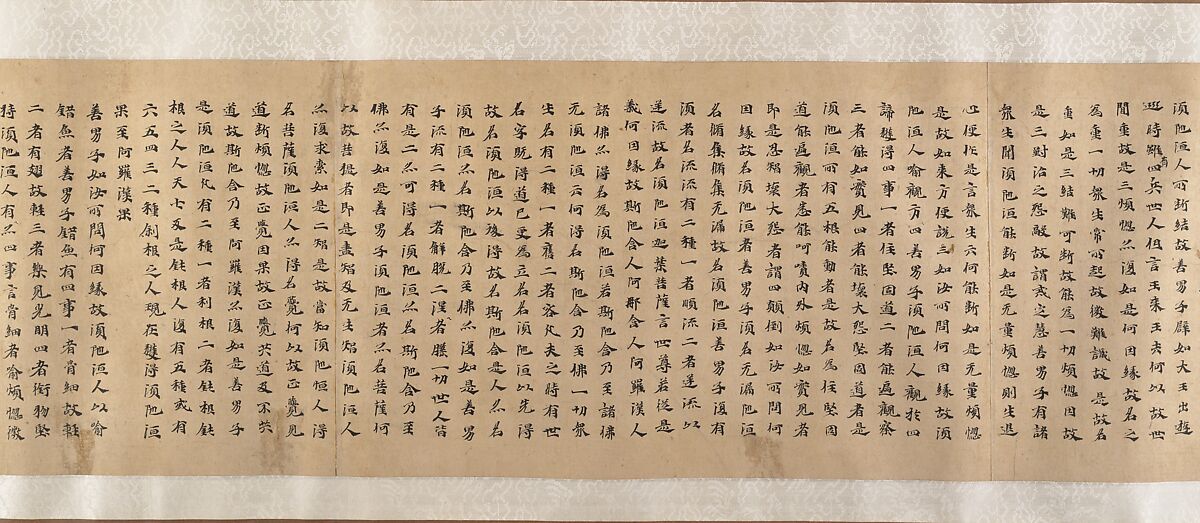 須陁洹人所断結故善男子辟如大王出遊
巡時雖有四兵世人但言王来王去何以故世
間重故是三煩惚亦復如是何因緣故名之
為重一切衆生常所起故微難識故是故名
重如是三結難可断故能為一切煩惚因故
是三對治之怨敵故謂戒定慧善男子有諸
衆生聞須陁洹能断如是无量煩惚則生退
心便作是言衆生云何能断如是无量煩惚
是故如来方便說三如汝所問何因緣故須
陁洹人喻觀方四善男子須陁洹人觀於四
諦獲得四事一者住堅固道二者能遍觀察
三者能如實見四者能壞大怨堅固道者是
須陁洹所有五根能動者是故名為住堅固
道能遍觀者悉能呵嘖内外煩惚如實見者
即是忍智壞大怨者謂四顛倒如汝所問何
因緣故名須陁洹者善男子須名无漏陁洹
名脩集脩集无漏故名須陁洹善男子復有
須者名流流有二種一者順流二者逆流以
逆流故名須陁洹迦葉菩薩言世尊若從是
義何因緣故斯陁含人阿那含人阿羅漢人
不得名為須陁洹善男子從須陁洹乃至
諸佛亦得名為須陁洹若斯陁含乃至諸佛
无須陁洹云何得名斯陁含乃至佛一切衆
生名有二種一者舊二者客凡夫之時有世
名字既得道已更為立名名須陁洹以先得
故名須陁洹以後得故名斯陁含是人亦名
須陁洹亦名斯陁含乃至佛亦復如是善男
子流有二種一者解脫二涅槃一切聖人皆
有是二亦可得名須陁洹亦名斯陁含乃至
佛亦復如是善男子須陁洹者亦名菩薩何
以故菩提者即是盡智及无生智須陁洹人
亦復求索如是二智是故當知須陁恒人得
名菩薩須陁洹人亦得名覺何以故正覺見
道断煩惚故正覺因果故正覺共道及不共
道故斯陁含乃至阿羅漢亦復如是善男子
是須陁洹凡有二種一者利根二者鈍根鈍
根之人人天七反是鈍根人復有五種或有
六五四三二種利根之人現在獲得須陁洹
果至阿羅漢果
善男子如汝所問何因緣故須陁洹人以喻
錯魚者善男子錯魚有四事一者骨細故輕
二者有翅故輕三者樂見光明四者銜物堅
持須陁洹人有亦四事言骨細者喻煩惚微